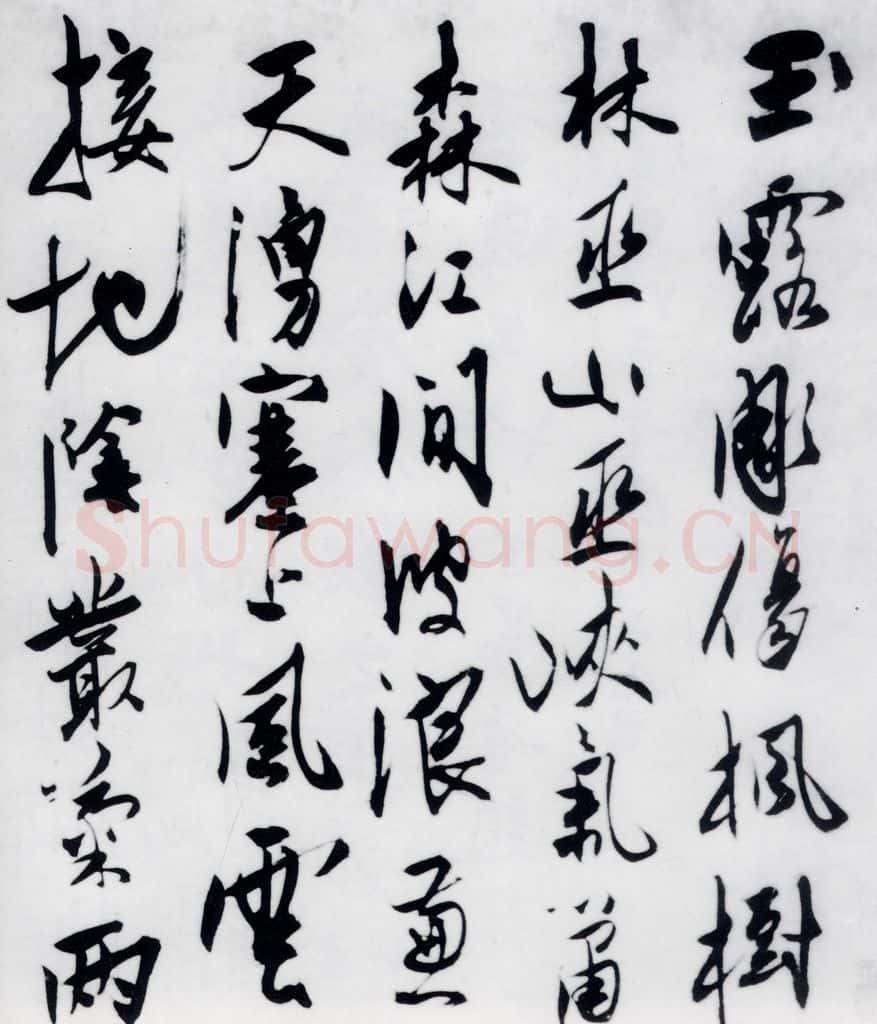 玉露彫傷楓樹
林巫山巫峽氣蕭
森江間波浪兼
天湧塞上風雲
接地陰叢菊兩
Shufawang.CN